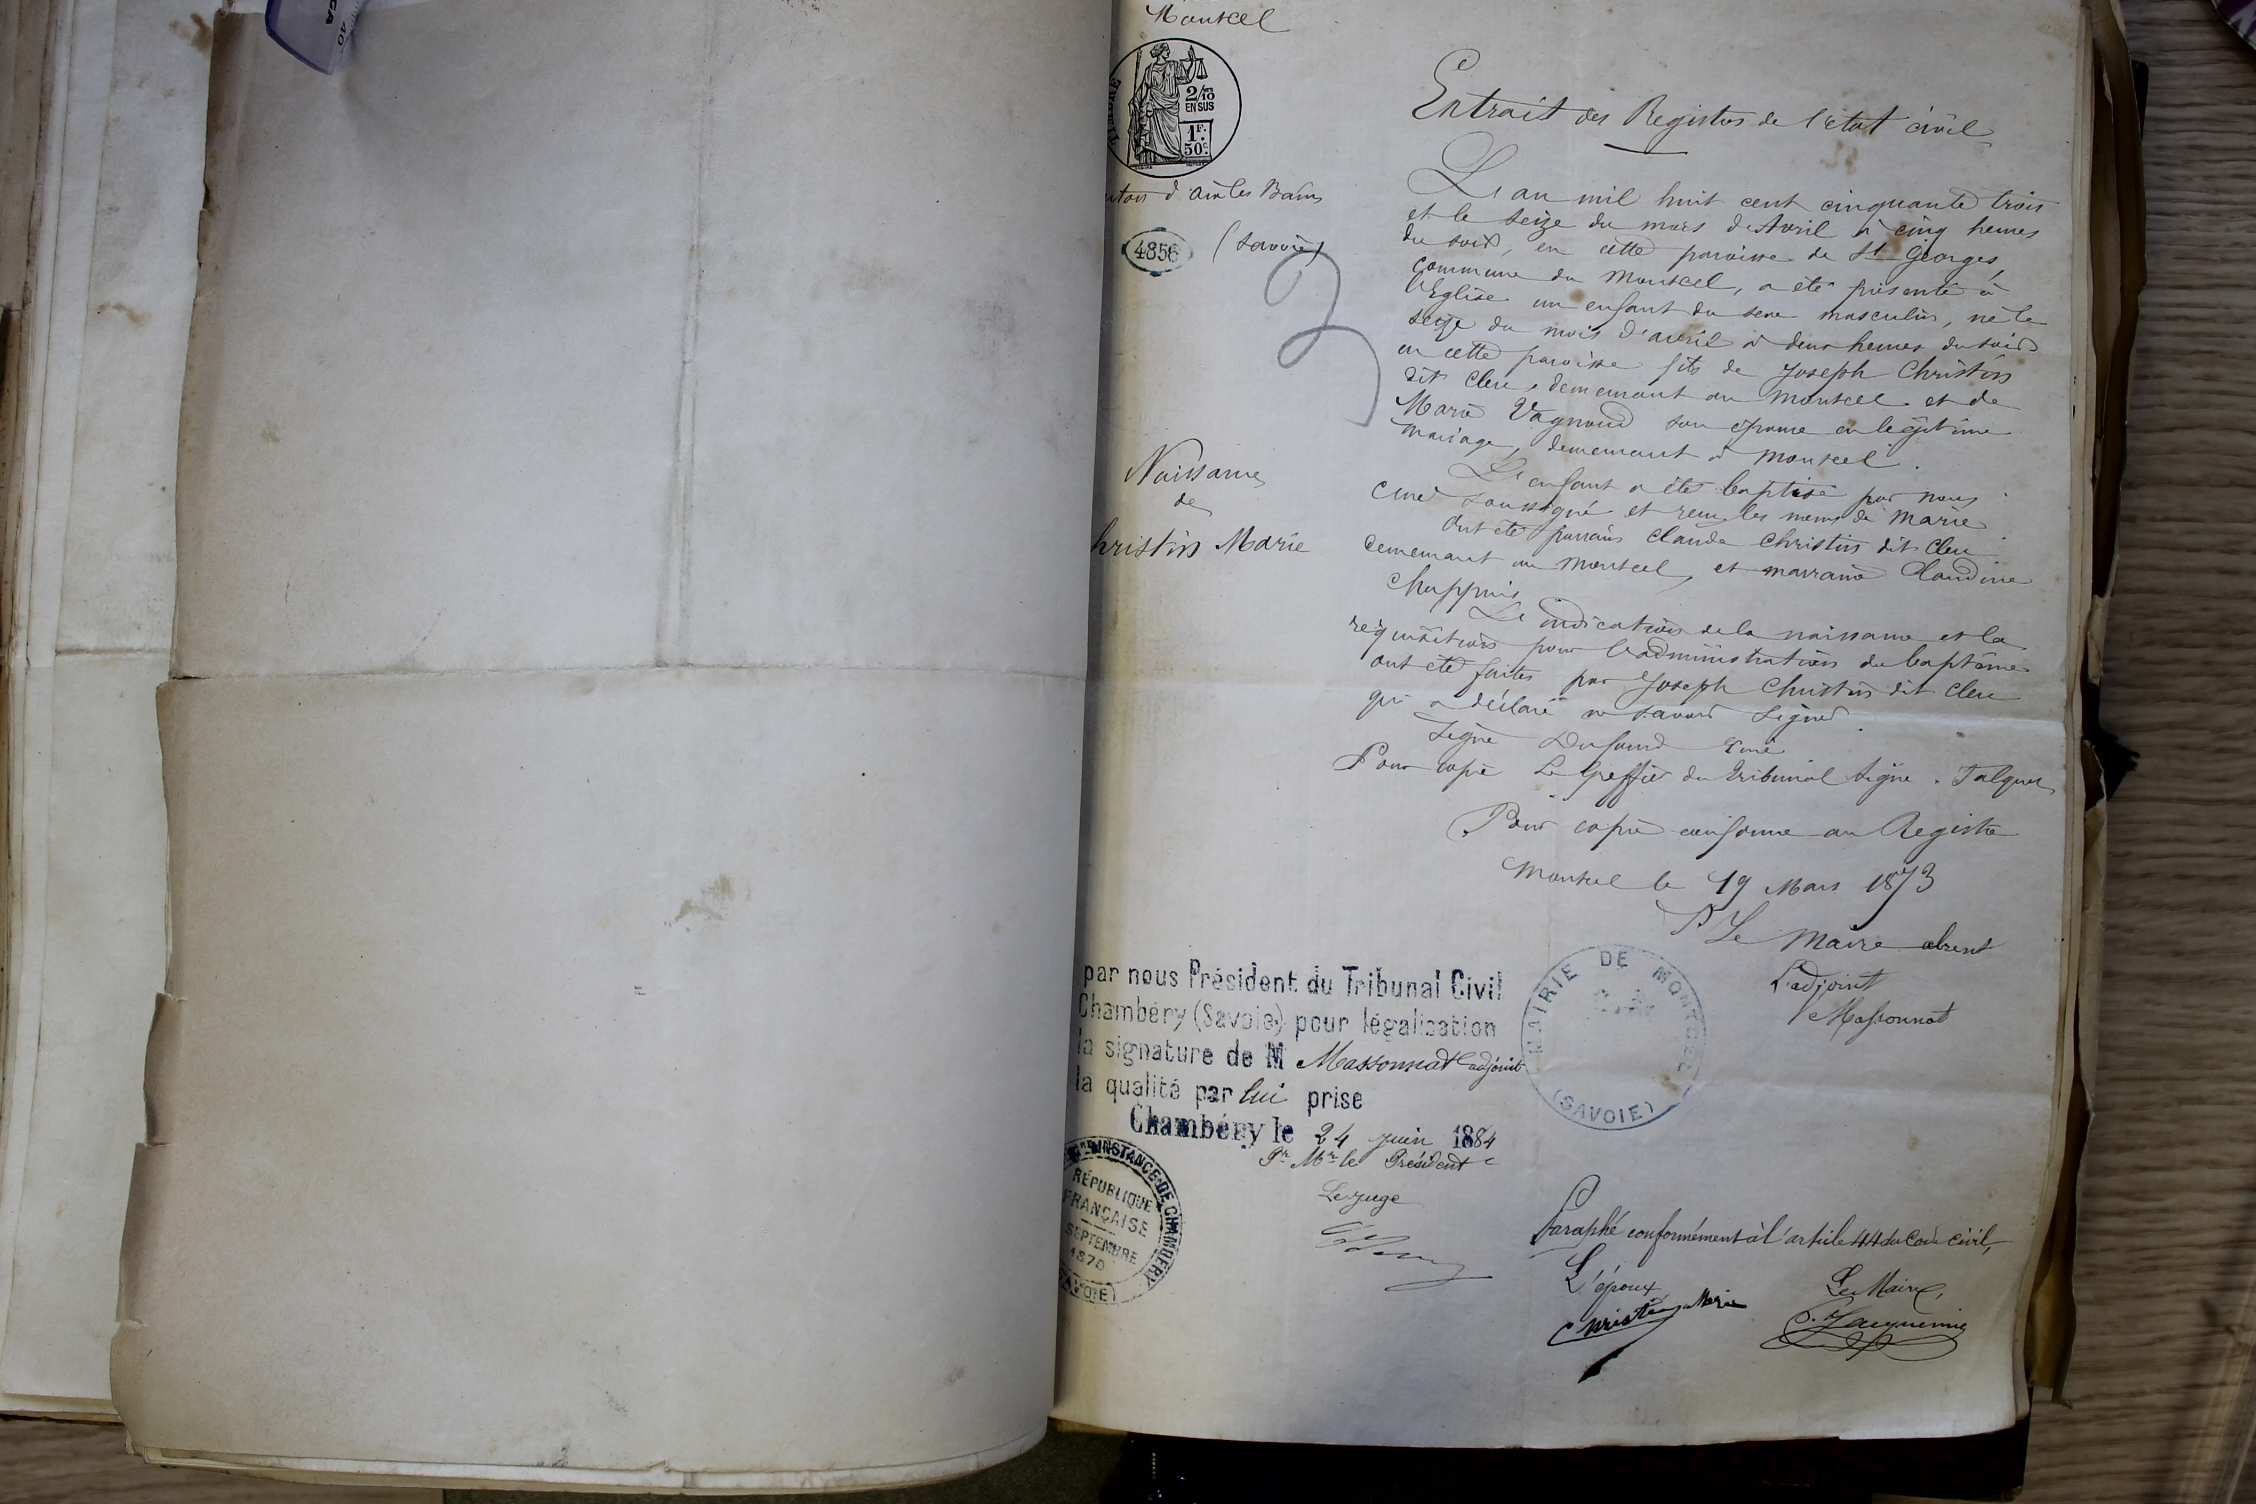 Montcel
TIMBRE
2/10
EN SUS
1F.
50c.
d'Aix les Bains
4856
(Savoie)
Naissance
de
hristin Marie
Extrait des Registres de l'état civil
L'an mil huit cent cinquante trois
et le seize du mois d'Avril à cinq heures
du soir, en cette paroisse de St Georges,
commune du Montcel, a été présenté à
l'Eglise un enfant du sexe masculin, né le
seize du mois d'avril à deux heures du soir
en cette paroisse fils de Joseph Christin
dit Clerc, demeurant au Montcel et de
Marie Vagnoud son épouse en légitime
mariage, demeurant à Montcel.
L'enfant a été baptisé par nous
curé soussigné et reçu les noms de Marie
Ont été parrain Claude Christin dit Clerc
demeurant au Montcel, et marraine Claudine
Chappuis
Le indication de la naissance et la
réquisition pour l'administration du baptême
ont été faites par Joseph Christin dit Clerc
qui a déclaré ne savoir signer.
Signé Dufourd Curé
Pour copie Le Greffier du Tribunal signé.
Pour copie conforme au Registre
Montcel le 19 Mars 1873
Pr Le Maire absent
L'adjoint
Massonnat
MAIRIE DE MONTCEL
(SAVOIE)
par nous Président du Tribunal Civil
Chambéry (Savoie) pour légalisation
la signature de M Massonnat adjoint
la qualité par lui prise
Chambéry le 24 juin 1884
Pr Mr le Président
Le juge
INSTANCE DE CHAMBERY
RÉPUBLIQUE
FRANÇAISE
SEPTEMBRE
1870
Paraphé conformément à l'article 44 du Code civil,
L'époux
Christin Marie
Le Maire,
Jacquemin